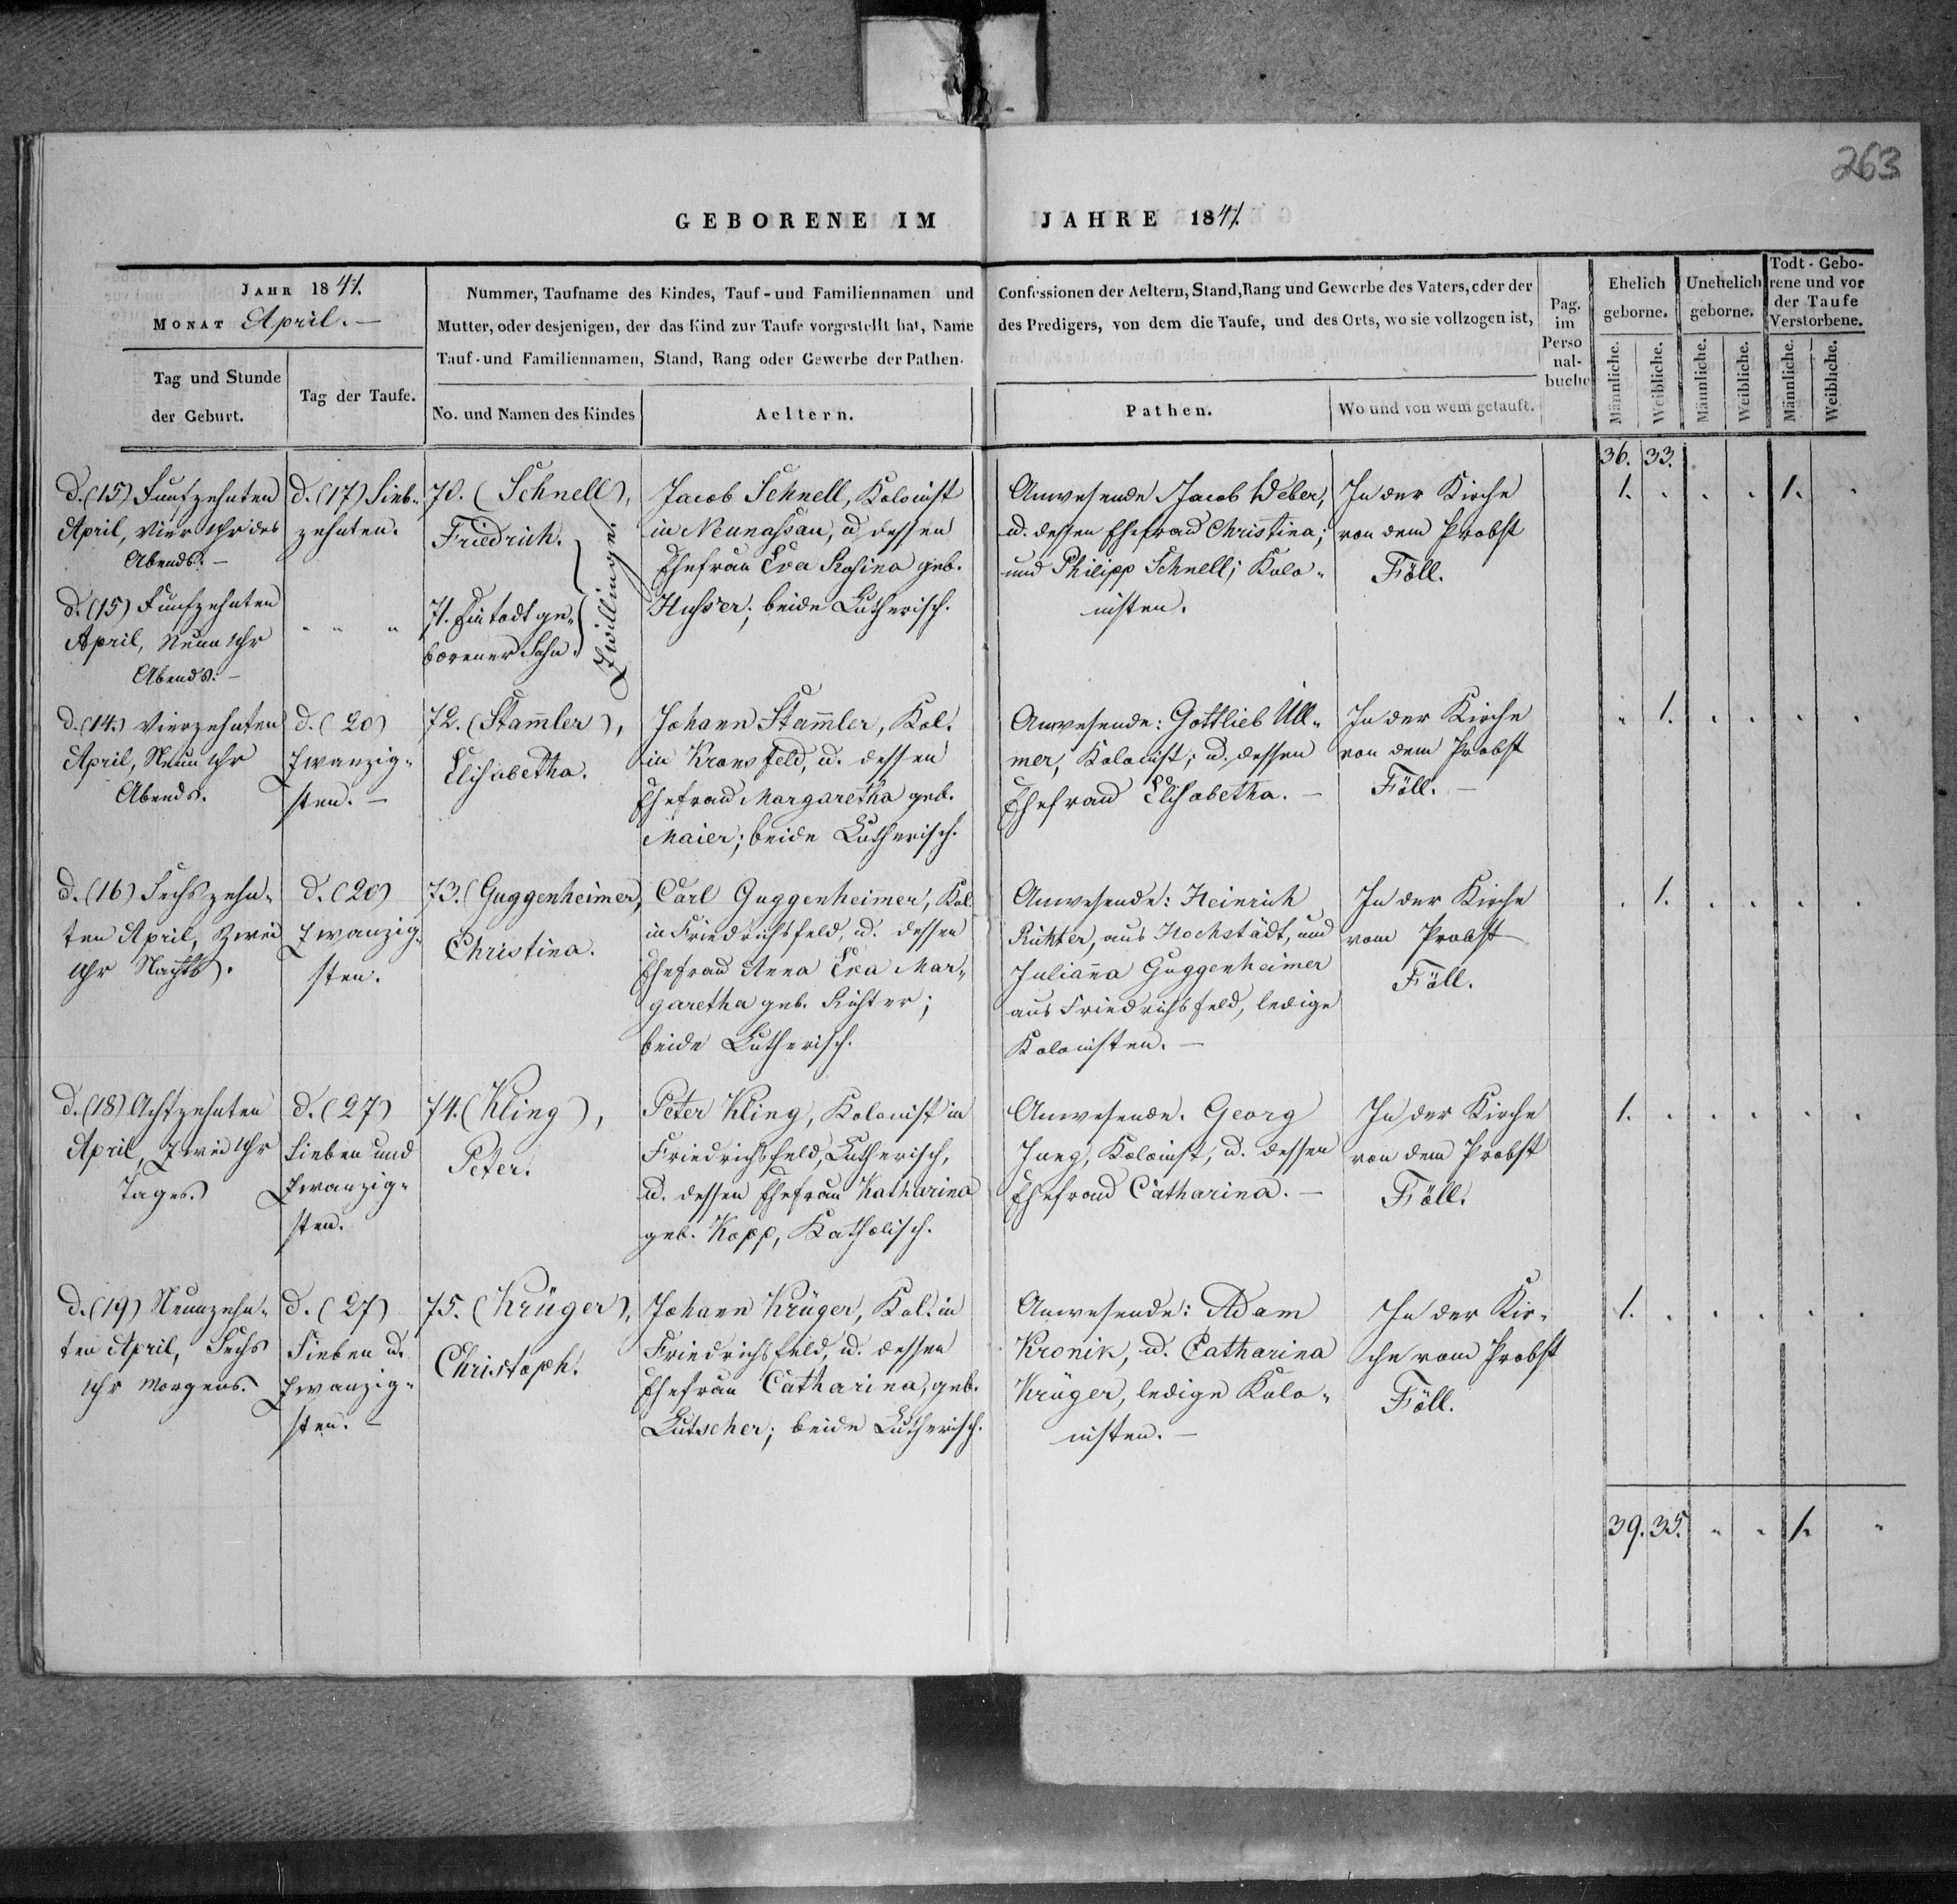 263
GEBORENE IM JAHRE 1841.
JAHR 1841.
MONAT April. —
Tag und Stunde
der Geburt.
Tag der Taufe.
Nummer, Taufname des Kindes, Tauf- und Familiennamen und
Mutter, oder desjenigen, der das Kind zur Taufe vorgestellt hat, Name
Tauf- und Familiennamen, Stand, Rang oder Gewerbe der Pathen.
No. und Namen des Kindes
Aeltern.
Confessionen der Aeltern, Stand, Rang und Gewerbe des Vaters, oder der
des Predigers, von dem die Taufe, und des Orts, wo sie vollzogen ist,
Pathen.
Wo und von wem getauft.
Pag.
im
Perso
nal-
buche
Ehelich
geborne.
Unehelich
geborne.
Todt-Gebo-
rene und vor
der Taufe
Verstorbene.
Männliche.
Weibliche.
Männliche.
Weibliche.
Männliche.
Weibliche.
36. 33.
d. (15) Funfzehnten
April, Vier Uhr des
Abends. —
d. (17) Sieb-
zehnten.
70. (Schnell),
Friedrich.
Zwillinge.
Jacob Schnell, Kolonist
in Neunassau, u. dessen
Ehefrau Eva Rosina geb.
Husser; beide Lutherisch.
Anwesende Jacob Weber,
u. dessen Ehefrau Christina;
und Philipp Schnell; Kolo-
nisten.
In der Kirche
von dem Probst
Föll.
1. . . . 1. .
d. (15) Funfzehnten
April, Neun Uhr
Abends. —
" " "
71. Ein todt ge-
borener Sohn.
d. (14.) Vierzehnten
April, Neun Uhr
Abends.
d. (20)
Zwanzig-
sten. —
72. (Stam̄ler),
Elisabetha.
Johann Stam̄ler, Kol.
in Kronsfeld, u. dessen
Ehefrau Margaretha geb.
Maier; beide Lutherisch.
Anwesende: Gottlieb Ull-
mer, Kolonist; u. dessen
Ehefrau Elisabetha. —
In der Kirche
von dem Probst
Föll. —
. 1. . . . .
d. (16) Sechszehn-
ten April, Zwei
Uhr Nachts.
d. (20)
Zwanzig-
sten.
73. (Guggenheimer),
Christina.
Carl Guggenheimer, Kol.
in Friedrichsfeld, u. dessen
Ehefrau Anna Eva Mar-
garetha geb. Richter;
beide Lutherisch.
Anwesende: Heinrich
Richter, aus Hochstädt, und
Juliana Guggenheimer
aus Friedrichsfeld, ledige
Kolonisten. —
In der Kirche
vom Probst
Föll.
. 1. . . . .
d. (18) Achtzehnten
April, Zwei Uhr
Tages.
d. (27)
Sieben und
Zwanzig-
sten.
74. (Kling),
Peter.
Peter Kling, Kolonist in
Friedrichsfeld, Lutherisch,
u. dessen Ehefrau Katharina
geb. Kopp, Katholisch.
Anwesende. Georg
Jung, Kolonist, u. dessen
Ehefrau Catharina. —
In der Kirche
von dem Probst
Föll.
1. . . . . .
d. (19) Neunzehn-
ten April, Sechs
Uhr Morgens.
d. (27)
Sieben u.
Zwanzig-
sten. —
75. (Krüger),
Christoph.
Johann Krüger, Kol. in
Friedrichsfeld, u. dessen
Ehefrau Catharina, geb.
Lutscher; beide Lutherisch.
Anwesende: Adam
Kronik, u. Catharina
Krüger, ledige Kolo-
nisten. —
In der Kir-
che vom Probst
Föll.
1. . . . . .
39. 35. " " 1. "